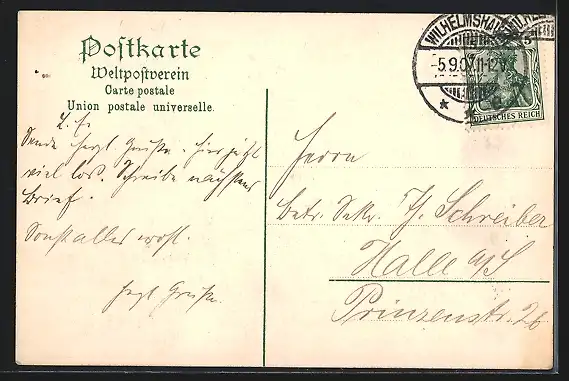 Postkarte
Weltpostverein
Carte postale
Union postale universelle.
WILHELMSHAVEN
-5.9.07.11-12V.
5
DEUTSCHES REICH
L. F.
Sende herzl. Grüße. hier jetzt
viel los. Schreibe nächstens
Brief.
Sonst alles wohl.
Herzl Grüße.
Herrn
Betr. Sekr. Schreiber
Halle a/S
Prinzenstr. 26